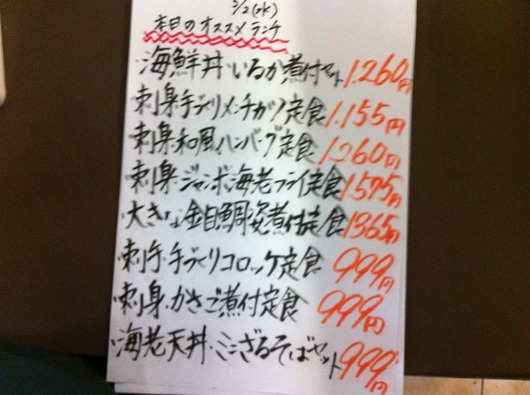 3/2(水)
本日のオススメランチ
・海鮮丼・いるか煮付セット 1.260円
・刺身・手づくりメンチカツ定食 1.155円
・刺身・和風ハンバーグ定食 1260円
・刺身・ジャンボ海老フライ定食 1575円
・大きな金目鯛姿煮付定食 1365円
・刺身・手づくりコロッケ定食 999円
・刺身・かさご煮付定食 999円
・海老天丼・ミニざるそばセット 999円